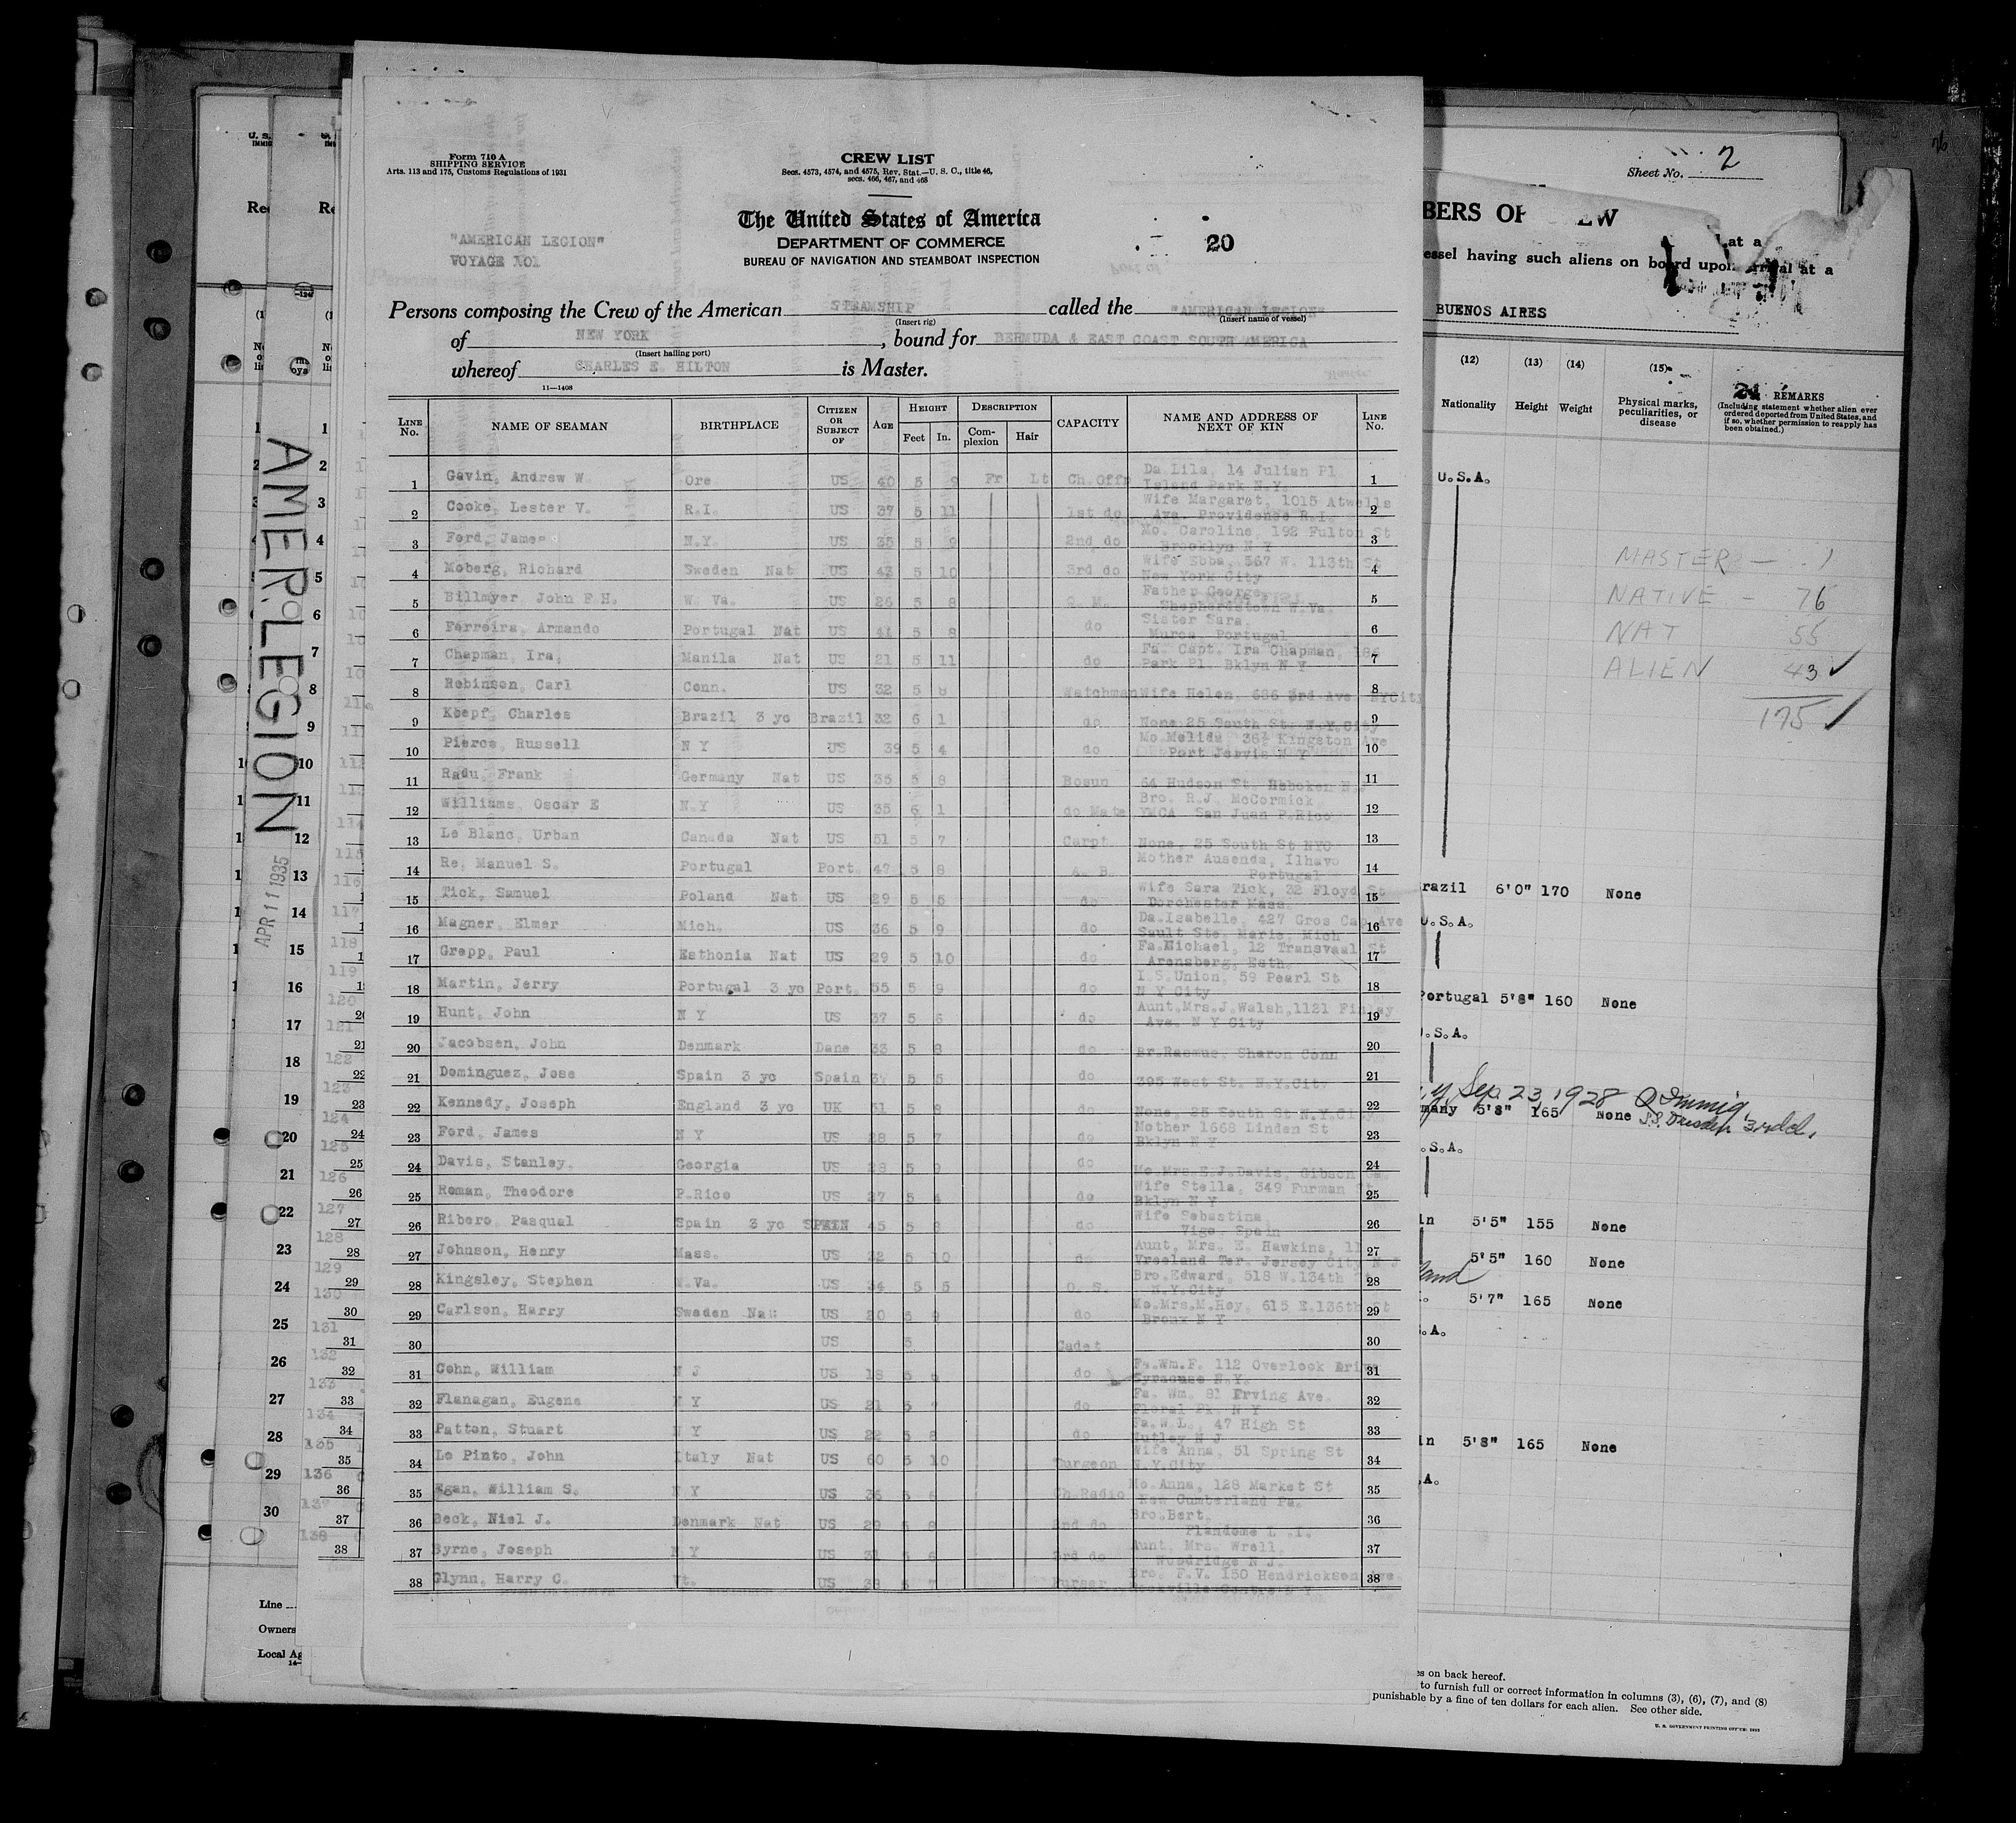 Form 710 A
SHIPPING SERVICE
Arts. 113 and 175, Customs Regulations of 1931
CREW LIST
Secs. 4573, 4574, and 4575, Rev. Stat.—U. S. C., title 46,
secs. 466, 467, and 468
The United States of America
DEPARTMENT OF COMMERCE
BUREAU OF NAVIGATION AND STEAMBOAT INSPECTION
20
"AMERICAN LEGION"
VOYAGE 101
Persons composing the Crew of the American STEAMSHIP called the "AMERICAN LEGION"
(Insert rig) (Insert name of vessel)
of NEW YORK, bound for BERMUDA & EAST COAST SOUTH AMERICA
(Insert hailing port)
whereof CHARLES E. HILTON is Master.
11—1408
LINE No. NAME OF SEAMAN BIRTHPLACE CITIZEN OR SUBJECT OF AGE HEIGHT Feet In. DESCRIPTION Complexion Hair CAPACITY NAME AND ADDRESS OF NEXT OF KIN LINE No.
1 Gavin, Andrew W. Ore US 40 5 9 Fr Lt Ch.Offr Da Lila, 14 Julian Pl Island Park N.Y. 1
2 Cooke, Lester V. R.I. US 37 5 11 1st do Wife Margaret, 1015 Atwells Ave. Providence R.I. 2
3 Ford, James N.Y. US 35 5 9 2nd do Mo. Caroline, 192 Fulton St Brooklyn N Y 3
4 Moberg, Richard Sweden Nat US 43 5 10 3rd do Wife 567 W. 113th St New York City 4
5 Billmyer, John F.H. W. Va. US 26 5 8 Q. M. Father George, Shepherdstown W.Va. 5
6 Ferreira, Armando Portugal Nat US 41 5 8 do Sister Sara, Murca, Portugal 6
7 Chapman, Ira, Manila Nat US 21 5 11 do Fa. Capt. Ira Chapman, Park Pl. Bklyn N Y 7
8 Robinson, Carl Conn. US 32 5 8 Watchman Wife Helen, 686 3rd Ave. NYCity 8
9 Koepf, Charles Brazil 3 yc Brazil 32 6 1 do None 25 South St. N.Y.City 9
10 Pierce, Russell N Y US 39 5 4 do Mo Melida 36½ Kingston Ave Port Jervis N Y 10
11 Radu, Frank Germany Nat US 35 5 8 Bosun 64 Hudson St. Hoboken N.J 11
12 Williams, Oscar E N.Y US 35 6 1 do Mate Bro. R.J. McCormick, YMCA San Juan P.Rico 12
13 Le Blanc, Urban Canada Nat US 51 5 7 Carpt None, 25 South St NYC 13
14 Re, Manuel S. Portugal Port. 47 5 8 A. B. Mother Ausenda, Ilhavo Portugal 14
15 Tick, Samuel Poland Nat US 29 5 5 do Wife Sara Tick, 32 Floyd St Dorchester Mass. 15
16 Magner, Elmer Mich. US 36 5 9 do Da.Isabelle, 427 Gros Cap Ave Sault Ste. Marie, Mich 16
17 Grepp, Paul Esthonia Nat US 29 5 10 do Fa.Michael, 12 Transvaal St Arensberg, Esth. 17
18 Martin, Jerry Portugal 3 yc Port. 55 5 9 do I.S.Union, 59 Pearl St N Y City 18
19 Hunt, John N Y US 37 5 6 do Aunt.Mrs.J.Walsh,1121 Finley Ave. N Y City 19
20 Jacobsen, John Denmark Dane 33 5 8 do Br.Rasmus, Sharon Conn 20
21 Dominguez, Jose Spain 3 yc Spain 5 5 do 395 West St. N.Y.City 21
22 Kennedy, Joseph England 3 yc UK 31 5 8 do None, 25 South St N.Y.C 22
23 Ford, James N Y US 28 5 7 do Mother 1668 Linden St Bklyn N Y 23
24 Davis, Stanley, Georgia US 28 5 9 do Mo.Mrs.E.J.Davis, Gibson Ga. 24
25 Roman, Theodore P.Rico US 27 5 4 do Wife Stella, 349 Furman St Bklyn N Y 25
26 Ribero, Pasqual Spain 3 yc SPAIN 45 5 8 do Wife Sebastina, Vigo, Spain 26
27 Johnson, Henry Mass. US 32 5 10 do Aunt, Mrs. E. Hawkins, 11 Vreeland Ter. Jersey City N J 27
28 Kingsley, Stephen W.Va. US 34 5 5 O. S. Bro.Edward, 518 W.134th St N.Y.City 28
29 Carlson, Harry Sweden Nat US 20 5 9 do Mo.Mrs.M.Hoy, 615 E.136th St Bronx N Y 29
30 US 5 Cadet 30
31 Cohn, William N J US 18 5 do Fa.Wm.F. 112 Overlook Drive Syracuse N.Y. 31
32 Flanagan, Eugene N Y US 21 5 do Fa. Wm. 81 Irving Ave. Floral Pk. N Y 32
33 Patton, Stuart N Y US 22 5 8 do Fa.W.L., 47 High St Nutley N J 33
34 Lo Pinto, John Italy Nat US 60 5 10 Surgeon Wife Anna, 51 Spring St N.Y.City 34
35 Egan, William S. N Y US 36 5 6 Ch.Radio Mo.Anna, 128 Market St New Cumberland Pa. 35
36 Beck, Niel J. Denmark Nat US 29 5 8 2nd do Bro.Bert, Plandome L .I. 36
37 Byrne, Joseph N Y US 31 5 6 3rd do Aunt, Mrs. Wrell, Woodridge N J. 37
38 Glynn, Harry C. Vt. US 38 5 7 Purser Bro. F.V. 150 Hendrickson Ave. Rockville Centre N Y 38
AMER. LEGION
APR 11 1935
Line
Owners
Local Ag
Sheet No. 2
BERS OF EW
at a
essel having such aliens on board upon arrival at a
BUENOS AIRES
(12) (13) (14) (15)
Nationality Height Weight Physical marks, peculiarities, or disease
24 REMARKS
(Including statement whether alien ever ordered deported from United States, and if so, whether permission to reapply has been obtained.)
U.S.A.
MASTER — 1
NATIVE - 76
NAT 55
ALIEN 43 ✓
175 ✓
razil 6'0" 170 None
U.S.A.
Portugal 5'8" 160 None
.S.A.
Sep. 23, 1928
many 5'8" 165 None S.S. Dresden 3rd cl.
.S.A.
in 5'5" 155 None
5'5" 160 None
land
5'7" 165 None
.A.
in 5'8" 165 None
.A.
es on back hereof.
to furnish full or correct information in columns (3), (6), (7), and (8)
punishable by a fine of ten dollars for each alien. See other side.
U. S. GOVERNMENT PRINTING OFFICE: 1933